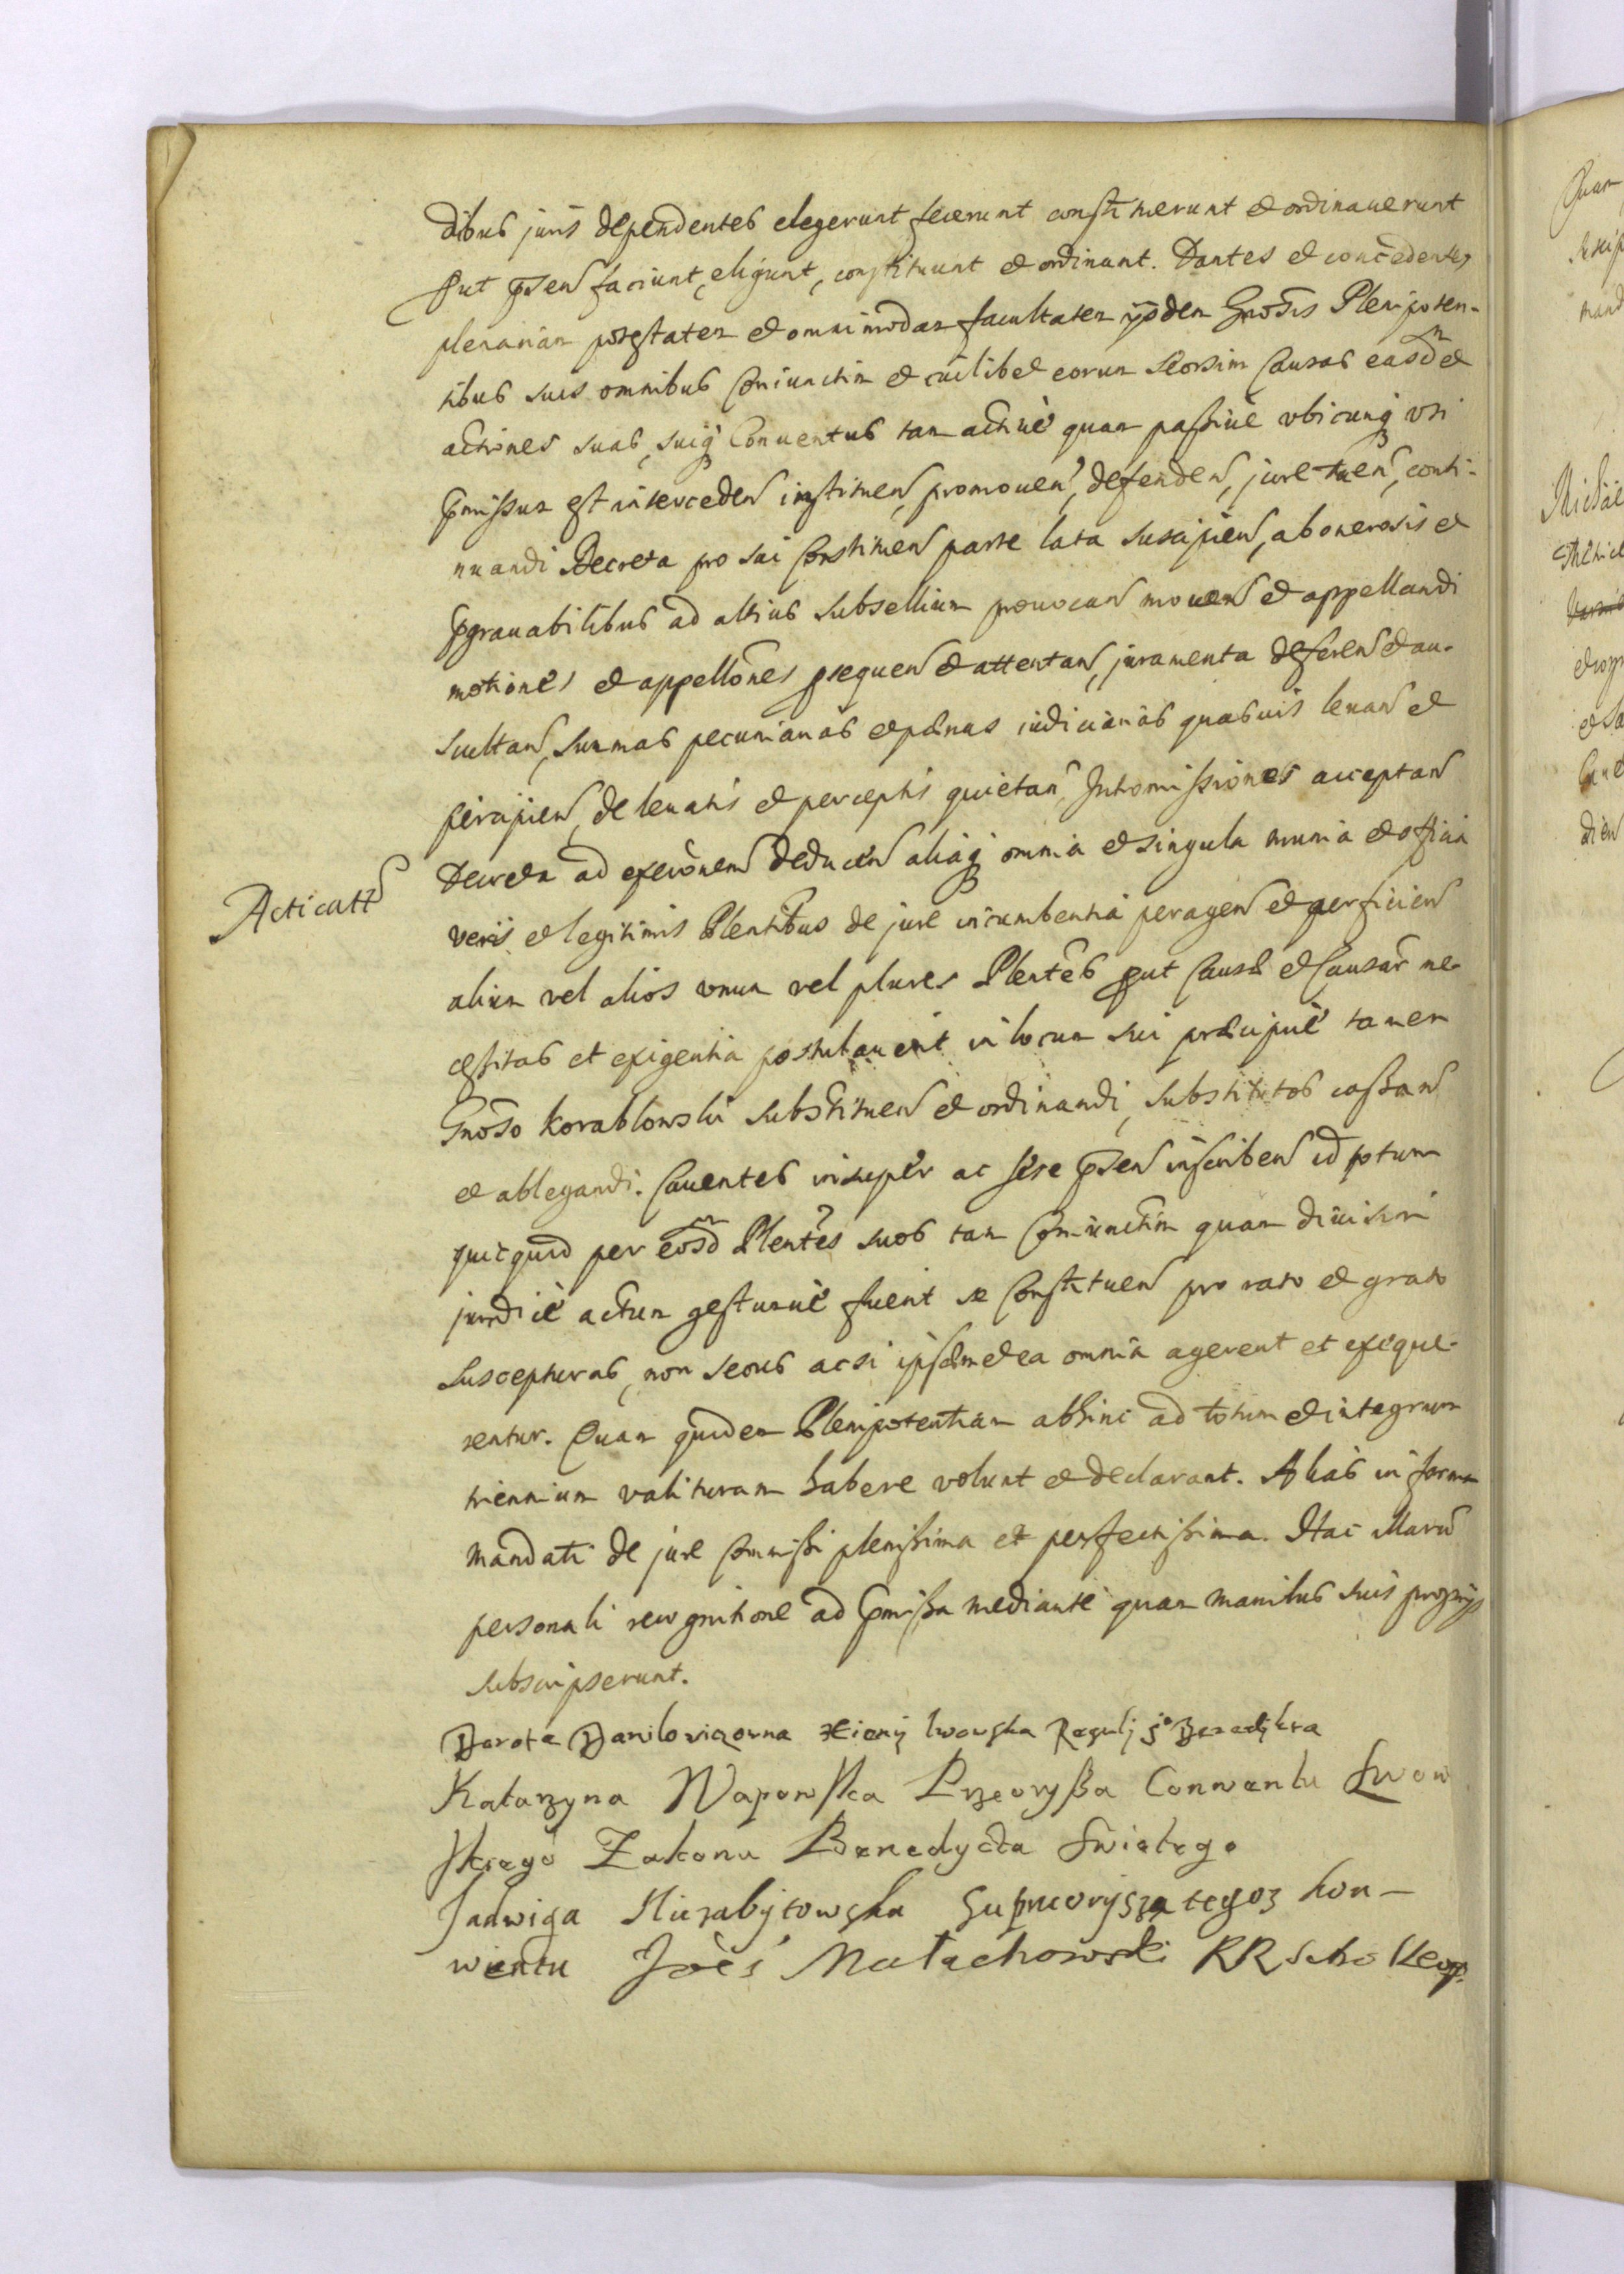 dibus juris dependentes elegerunt fecerunt constituerunt et ordinauerunt
put pñten faciunt, eligunt, constituunt et ordinant. Dantes et concedentes
plenariam potestatem et omnimodam facultatem ijsdem Gnosis Plenipoten-
tibus suis omnibus Coniunctim et cuilibet eorum seorsim Causas easdm et
actiones suas, suiq Conuentus tam actiuè quam passiuè vbicunq vti
pmissum est interceden instituen, promouen, defenden, jure tuen, conti-
nuandi Decreta pro sui Constituen parte lata suscipien, ab onerosis et
pgrauabilibus ad altius subsellium prouocan mouen et appellandi
motiones et appellones psequen et attentan, juramenta deferen et au-
scultan, summas pecuniarias et pœnas iudiciarias quasuis leuan et
percipien, de leuatis et perceptis quietan, Intromissiones acceptan
Decreta ad exeronem deducen aliaq omnia et singula munia et officia
Acticatt
veris et legitimis Plentibus de jure incumbentia peragen et perficien
alium vel alios vnum vel plures Plentes put Causæ et Causar ne-
cessitas et exigentia postulauerit in locum sui præcipuè tamen
Gnoso Korablowski substituen et ordinandi, substitutos cassan
et ablegandi. Cauentes insuper ac sese pñten inscriben id totum
quicquid per eosdm Plentes suos tam Coniunctim quam diuisim
juridicè actum gestumuè fuerit se Constituen pro rato et grato
suscepturas, non secus ac si ipsæmet ea omnia agerent et exeque-
rentur. Quam quidem Plenipotentiam abhinc ad totum et integrum
triennium valituram habere volunt et declarant. Alias in forma
mandati de jure Cõmissi plenissima et perfectissima. Hac illarum
personali recognitione ad pmissa mediante quam manibus suis proprijs
subscripserunt.
Dorota Daniloviczowna Xieny lwowska Reguly So Benedykta
Katarzyna Wapowska Przeorysza Conwentu Lwow
skiego Zakonu Benedycta Swietego
Jadwiga Niezabytowska Supprioryszа tegoz kon-
wentu Joes Małachowski RR